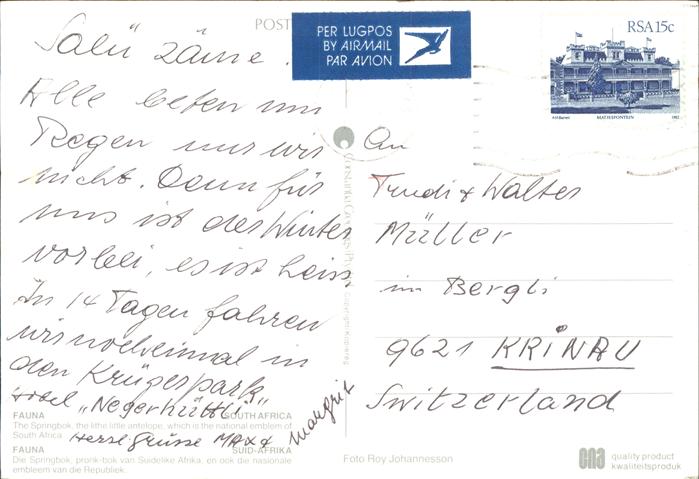 POST
PER LUGPOS
BY AIRMAIL
PAR AVION
RSA 15c
MATJIESFONTEIN
1982
Salü zäme.
Alle beten um
Regen nur wir
nicht. Denn für
uns ist der Winter
vorbei, es ist heiss
In 14 Tagen fahren
wir nocheinmal in
den Krügerpark
Hotel „Negerhüttli"
Herzl. Grüsse Max &
Margrit
An
Trudi & Walter
Müller
im Bergli
9621 KRINAU
Switzerland
FAUNA SOUTH AFRICA
The Springbok, the lithe little antelope, which is the national emblem of
South Africa
FAUNA SUID-AFRIKA
Die Springbok, pronk-bok van Suidelike Afrika, en ook die nasionale
embleem van die Republiek.
Foto Roy Johannesson
cna quality product
kwaliteitsproduk